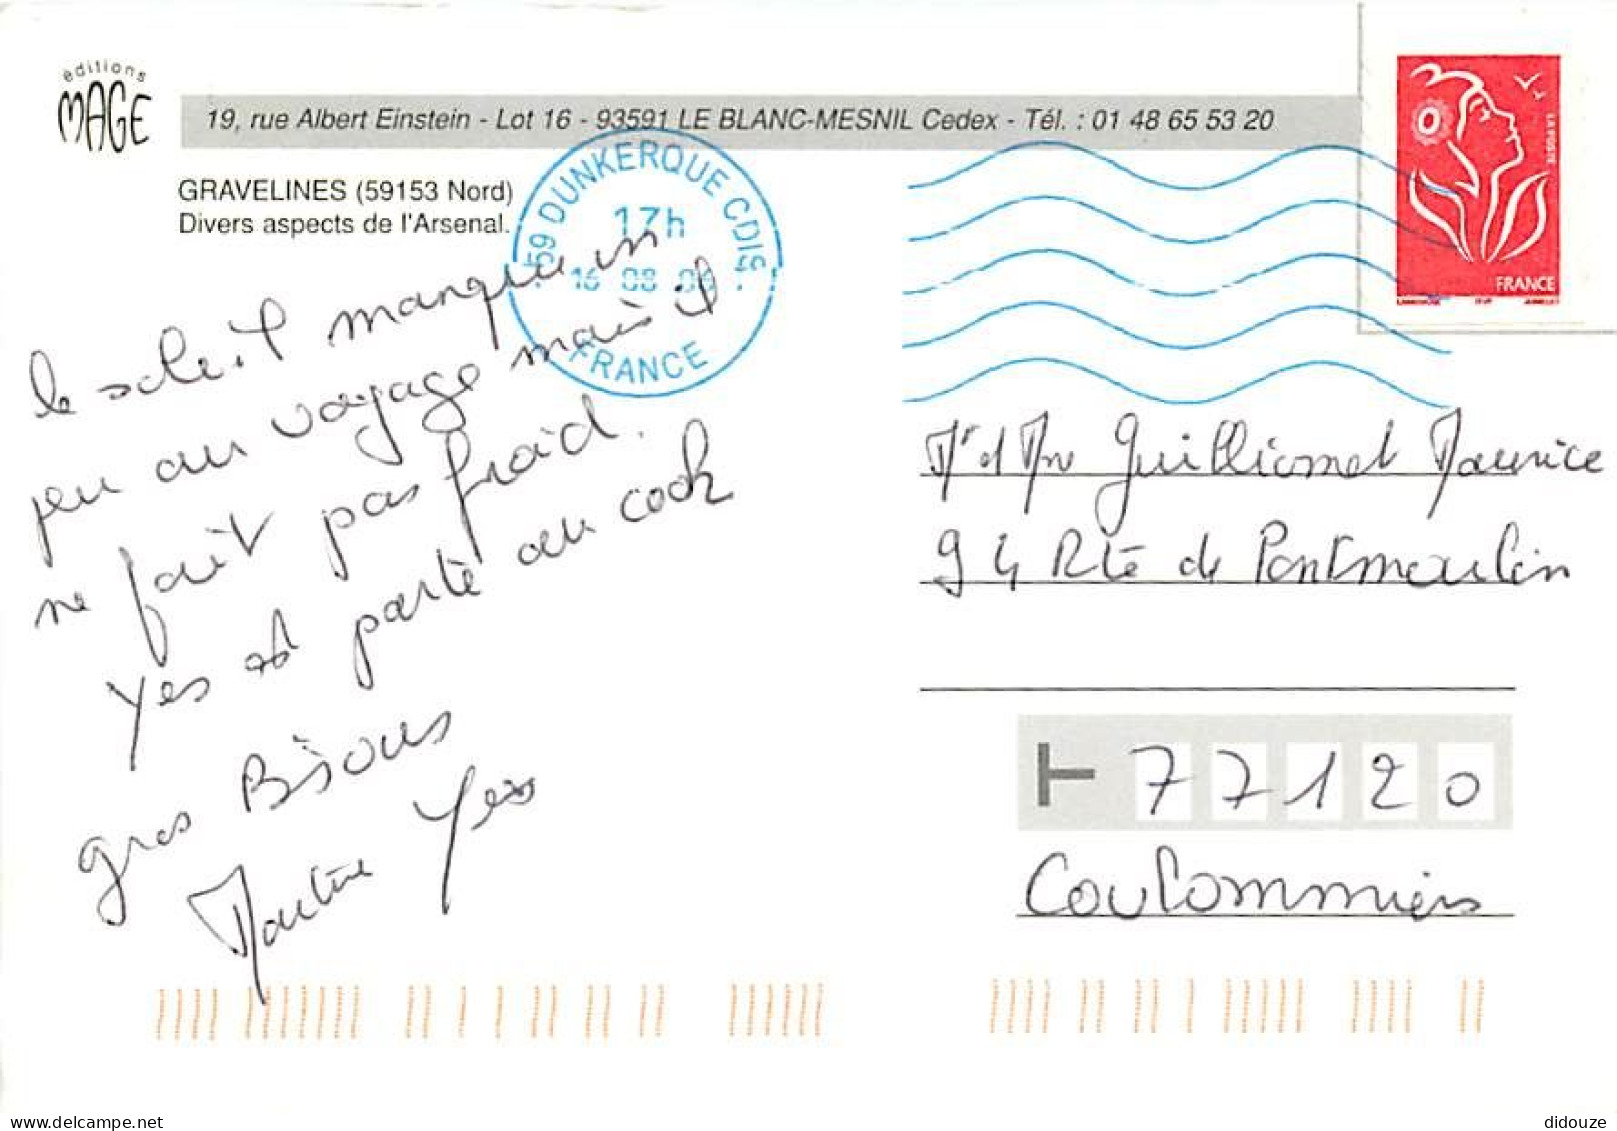 éditions
MAGE
19, rue Albert Einstein - Lot 16 - 93591 LE BLANC-MESNIL Cedex - Tél. : 01 48 65 53 20
GRAVELINES (59153 Nord)
Divers aspects de l'Arsenal.
59 DUNKERQUE CDIS
17h
16 08 06
FRANCE
LA POSTE
FRANCE
le soleil manque un
peu au voyage mais il
ne fait pas froid.
Yes et parti au cock
gros Bisous
Martine Yes
Mr et Me Guilliomet Maurice
94 Rte de Pontmoulin
77120
Coulommiers
delcampe.net
didouze